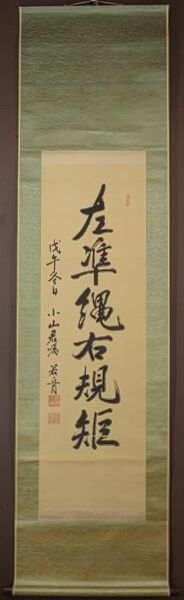 左準繩右規矩
戊午冬日 小山君嘱 若青